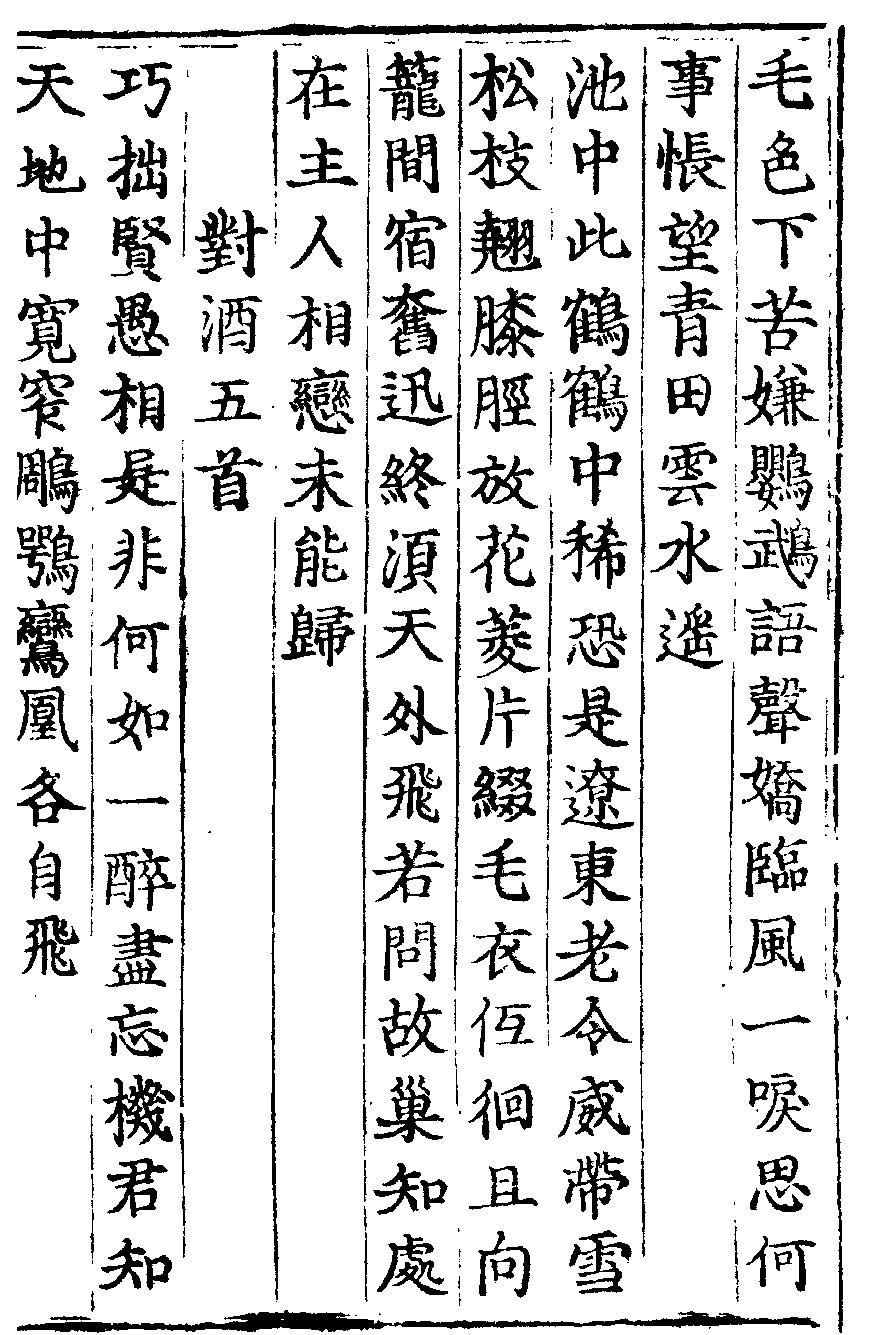 毛色下苦嫌鸚鵡語聲嬌臨風一唳思何
事悵望青田雲水遥
池中此鶴鶴中稀恐是遼東老令威帶雪
松枝翹膝脛放花菱片綴毛衣低徊且向
籠間宿奮迅終須天外飛若問故巢知處
在主人相戀未能歸
對酒五首
巧拙賢愚相是非何如一醉盡忘機君知
天地中寛窄鵰鶚鸞凰各自飛